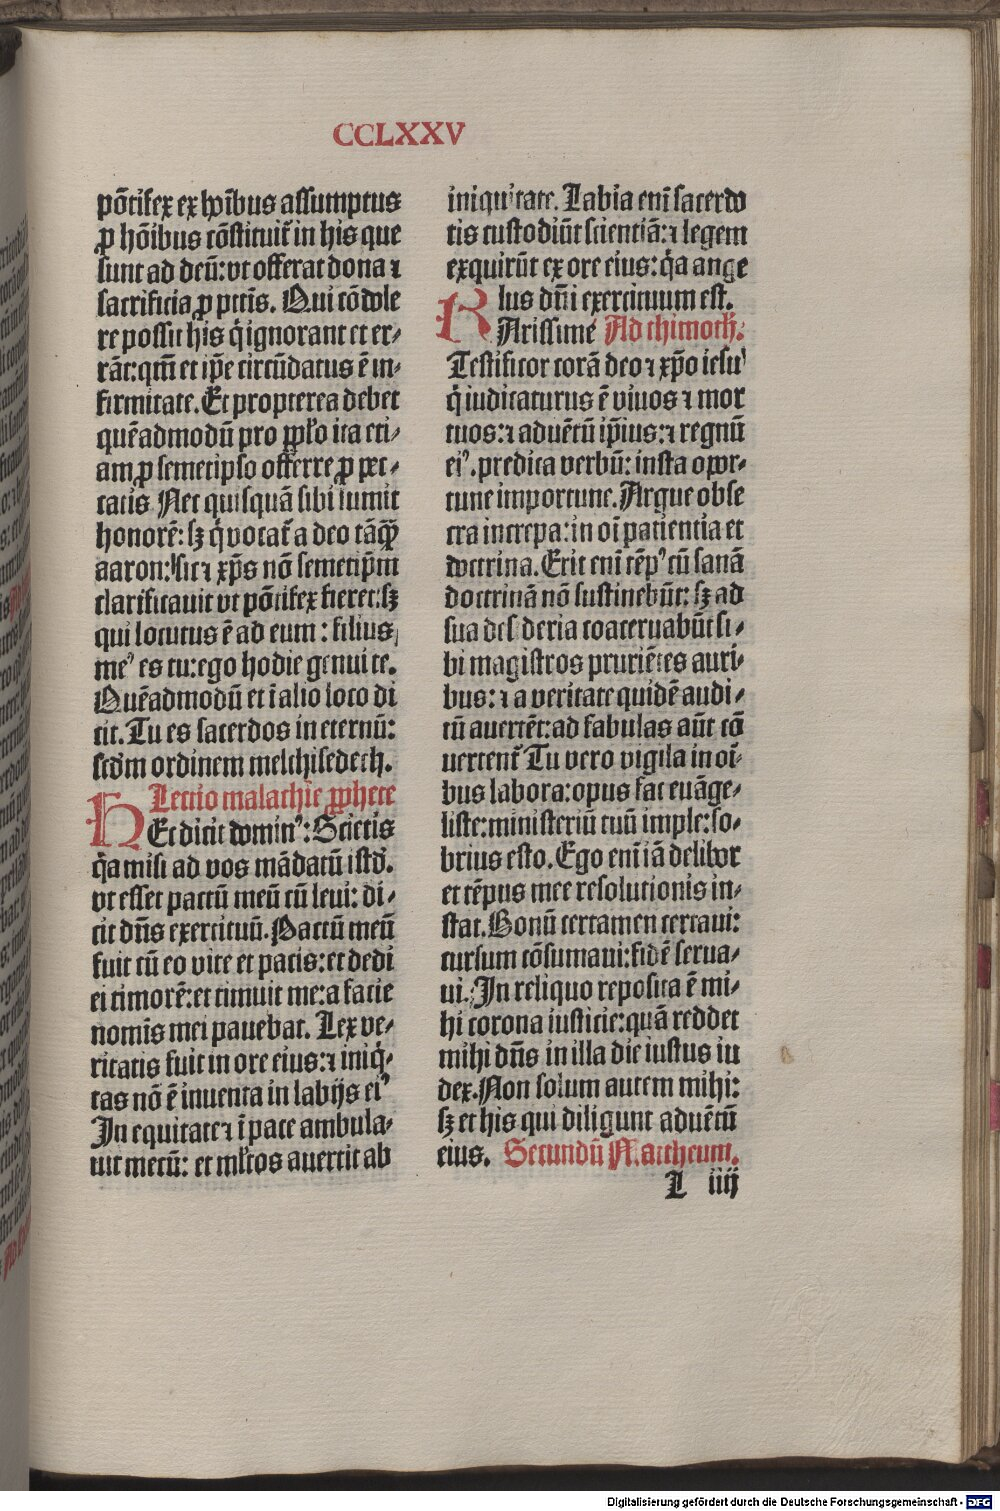 CCLXXV
põtifex ex hoĩbus assumptus
ꝓ hõibus cõstituit᷑ in his que
sunt ad deũ: vt offerat dona ⁊
sacrificia ꝓ pctĩs. Qui cõdole
re possit his q̃ ignorant et er⸗
rãt: qm̃ et ip̃e circũdatus ẽ in⸗
firmitate. Et propterea debet
quẽadmodũ pro ꝓpl̃o ita eti⸗
am ꝓ semetipso offerre ꝓ pec⸗
catis Nec quisquã sibi sumit
honorẽ: sꝫ q̃ vocat᷑ a deo tãqꝫ
aaron: sic ⁊ xp̃s nõ semetip̃m
clarificauit vt põtifex fieret: sꝫ
qui locutus ẽ ad eum: filius
meꝰ es tu: ego hodie genui te.
Quẽadmodũ et ĩ alio loco di
cit. Tu es sacerdos in eternũ:
scd̃m ordinem melchisedech.
Lectio malachie ꝓphete
HEc dicit dominꝰ: Scietis
q̃a misi ad vos mãdatũ istd̃.
vt esset pactũ meũ cũ leui: di⸗
cit dñs exercituũ. Pactũ meũ
fuit cũ eo vite et pacis: et dedi
ei timorẽ: et timuit me: a facie
nomĩs mei pauebat. Lex ve⸗
ritatis fuit in ore eius: ⁊ iniq̃⸗
tas nõ ẽ inuenta in labijs eiꝰ
In equitate ⁊ ĩ pace ambula⸗
uit mecũ: et ml̃tos auertit ab
iniquitate. Labia enĩ sacerdo
tis custodiũt scientiã: ⁊ legem
exquirũt ex ore eius: q̃a ange
lus dñi exercituum est.
KArissime Ad thimoth̃.
Testificor corã deo ⁊ xp̃o iesu
q̃ iudicaturus ẽ viuos ⁊ mor
tuos: ⁊ aduẽtũ ip̃ius: ⁊ regnũ
eiꝰ. predica verbũ: insta opor⸗
tune importune. Argue obse
cra increpa: in oĩ patientia et
doctrina. Erit enĩ tẽpꝰ cũ sanã
doctrinã nõ sustinebũt: sꝫ ad
sua desideria coaceruabũt si⸗
bi magistros pruriẽtes auri⸗
bus: ⁊ a veritate quidẽ audi⸗
tũ auertẽt: ad fabulas aũt cõ
uertent᷑ Tu vero vigila in oĩ⸗
bus labora: opus fac euãge⸗
liste: ministeriũ tuũ imple: so⸗
brius esto. Ego enĩ iã delibor
et tẽpus mee resolutionis in⸗
stat. Bonũ certamen certaui:
cursum cõsumaui: fidẽ serua⸗
ui. In reliquo reposita ẽ mi⸗
hi corona iusticie: quã reddet
mihi dñs in illa die iustus iu
dex. Non solum autem mihi:
sꝫ et his qui diligunt aduẽtũ
eius. Secundũ Matheum.
L iiij
Digitalisierung gefördert durch die Deutsche Forschungsgemeinschaft - DFG